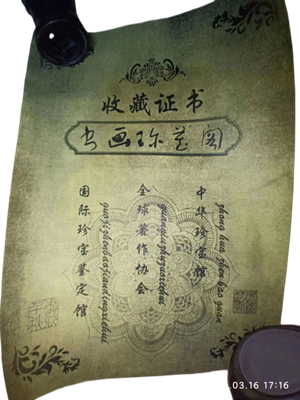 收藏证书
书画珍
中华珍宝馆
zhong hua zhen bao guan
全球著作协会
quanqiuzhuzuoxiehui
国际珍宝鉴定馆
guojizhenbaojiandingxiehui
.03.16 17:16